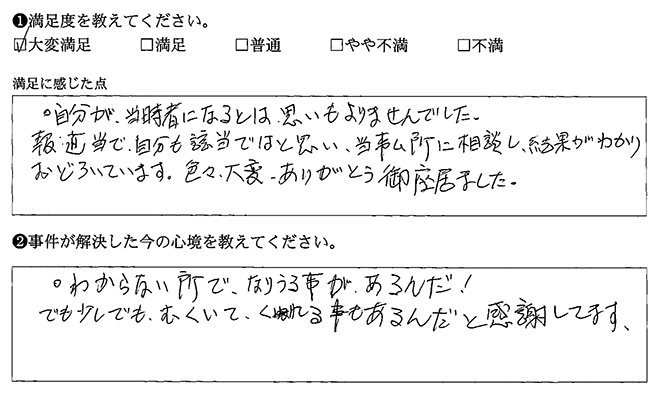 ❶満足度を教えてください。
☑大変満足 □満足 □普通 □やや不満 □不満
満足に感じた点
○自分が、当時者になるとは、思いもよりませんでした。
報道当で、自分も該当ではと思い、当事ム所に相談し、結果がわかり
おどろいています。色々、大変、ありがとう御座居ました。
❷事件が解決した今の心境を教えてください。
○わからない所で、なりうる事が、あるんだ!
でも少しでも、むくいて、くれる事もあるんだと感謝してます、